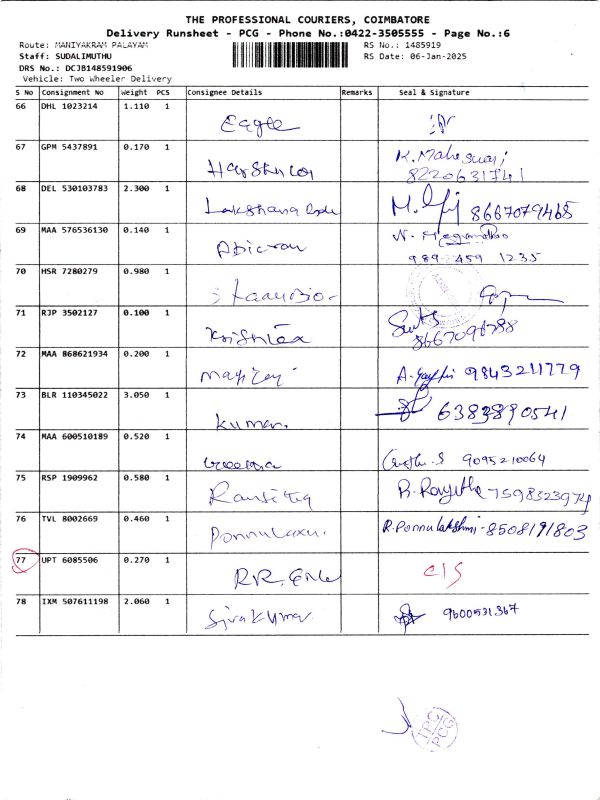 THE PROFESSIONAL COURIERS, COIMBATORE
Delivery Runsheet - PCG - Phone No.:0422-3505555 - Page No.:6
Route: MANIYAKRAM PALAYAM RS No.: 1485919
Staff: SUDALIMUTHU RS Date: 06-Jan-2025
DRS No.: DCJB148591906
Vehicle: Two Wheeler Delivery
S No Consignment No Weight PCS Consignee Details Remarks Seal & Signature
66 DHL 1023214 1.110 1
Eagle
67 GPM 5437891 0.170 1
K. Maheswari
8220631741
68 DEL 530103783 2.300 1
8667079465
69 MAA 576536130 0.140 1
989 459 1235
70 HSR 7280279 0.980 1
71 RJP 3502127 0.100 1
72 MAA 868621934 0.200 1
9843211779
73 BLR 110345022 3.050 1
kumar. 6383890541
74 MAA 600510189 0.520 1
9095210064
75 RSP 1909962 0.580 1
76 TVL 8002669 0.460 1
R. Ponnulakshmi - 8508191803
77 UPT 6085506 0.270 1
C/S
78 IXM 507611198 2.060 1
Sivakumar 9600531367
TPC
PCG